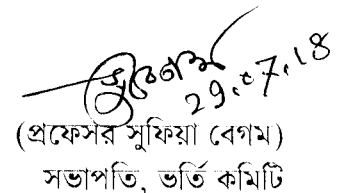 29.07.18
(প্রফেসর সুফিয়া বেগম)
সভাপতি, ভর্তি কমিটি